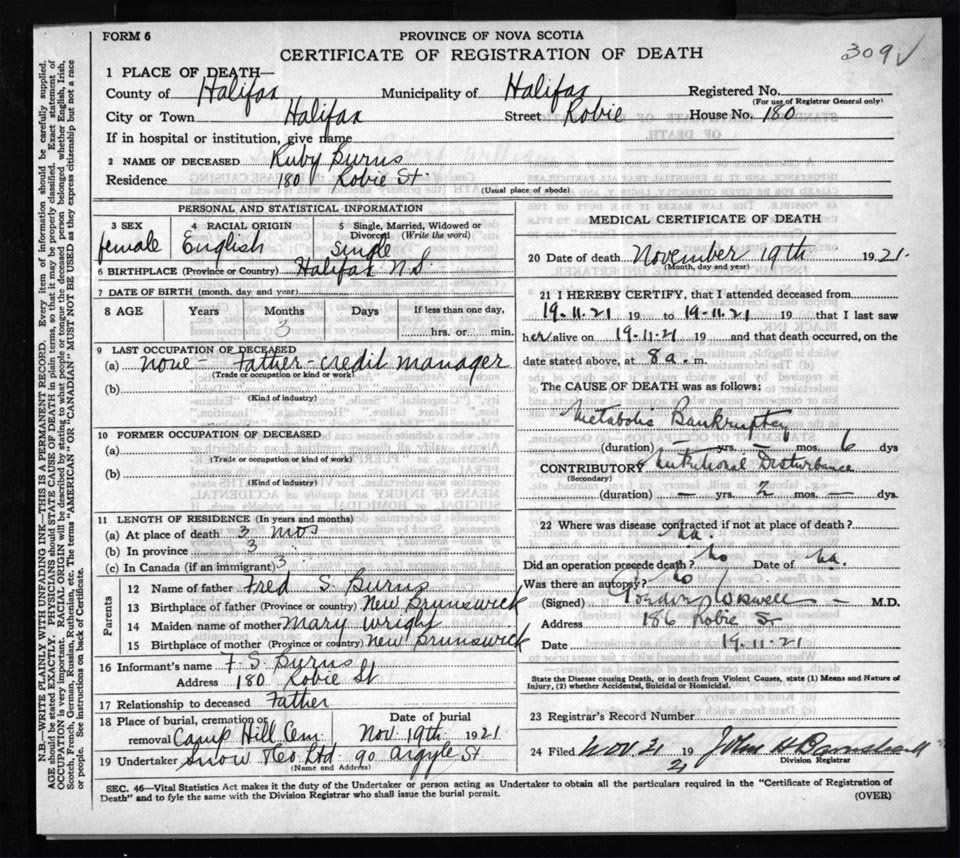 FORM 6
PROVINCE OF NOVA SCOTIA
CERTIFICATE OF REGISTRATION OF DEATH
309 ✓
1 PLACE OF DEATH—
County of Halifax Municipality of Halifax Registered No.
(For use of Registrar General only)
City or Town Halifax Street Robie House No. 180
If in hospital or institution, give name
2 NAME OF DECEASED Ruby Burns
Residence 180 Robie St.
(Usual place of abode)
PERSONAL AND STATISTICAL INFORMATION
3 SEX 4 RACIAL ORIGIN 5 Single, Married, Widowed or Divorced (Write the word)
female English Single
6 BIRTHPLACE (Province or Country) Halifax N.S.
7 DATE OF BIRTH (month, day and year)
8 AGE Years Months Days If less than one day,
3 hrs. or min.
9 LAST OCCUPATION OF DECEASED
(a) None - Father - credit manager
(Trade or occupation or kind or work)
(b)
(Kind of industry)
10 FORMER OCCUPATION OF DECEASED
(a)
(Trade or occupation or kind of work)
(b)
(Kind of industry)
11 LENGTH OF RESIDENCE (In years and months)
(a) At place of death 3 mos
(b) In province 3 "
(c) In Canada (if an immigrant) 3 "
Parents
12 Name of father Fred S. Burns
13 Birthplace of father (Province or country) New Brunswick
14 Maiden name of mother Mary Wright
15 Birthplace of mother (Province or country) New Brunswick
16 Informant's name F. S. Burns
Address 180 Robie St
17 Relationship to deceased Father
18 Place of burial, cremation or removal Camp Hill Cem
Date of burial Nov. 19th 1921
19 Undertaker Snow & Co. Ltd. 90 Argyle St
(Name and Address)
MEDICAL CERTIFICATE OF DEATH
20 Date of death November 19th 1921.
(Month, day and year)
21 I HEREBY CERTIFY, that I attended deceased from
19.11.21 19 to 19.11.21 19 that I last saw
her alive on 19.11.21 19 and that death occurred, on the
date stated above, at 8 a. m.
The CAUSE OF DEATH was as follows:
Metabolic Bankruptcy
(duration) — yrs. — mos. 6 dys
CONTRIBUTORY Nutritional Disturbance
(Secondary)
(duration) — yrs. 2 mos. — dys.
22 Where was disease contracted if not at place of death?
na.
Did an operation precede death? no Date of na.
Was there an autopsy? no
(Signed) M.D.
Address 186 Robie St
Date 19.11.21
State the Disease causing Death, or in death from Violent Causes, state (1) Means and Nature of
Injury, (2) whether Accidental, Suicidal or Homicidal.
23 Registrar's Record Number
24 Filed Nov. 21 1921 John H
Division Registrar
SEC. 46—Vital Statistics Act makes it the duty of the Undertaker or person acting as Undertaker to obtain all the particulars required in the "Certificate of Registration of
Death" and to fyle the same with the Division Registrar who shall issue the burial permit.
(OVER)
N.B.—WRITE PLAINLY WITH UNFADING INK—THIS IS A PERMANENT RECORD. Every item of information should be carefully supplied.
AGE should be stated EXACTLY. PHYSICIANS should STATE CAUSE OF DEATH in plain terms, so that it may be properly classified. Exact statement of
OCCUPATION is very important. RACIAL ORIGIN will be described by stating to what people or tongue the deceased person belonged whether English, Irish,
Scotch, French, German, Russian, Ruthenian, etc. The terms "AMERICAN" OR "CANADIAN" MUST NOT BE USED as they express citizenship but not a race
or people. See instructions on back of Certificate.